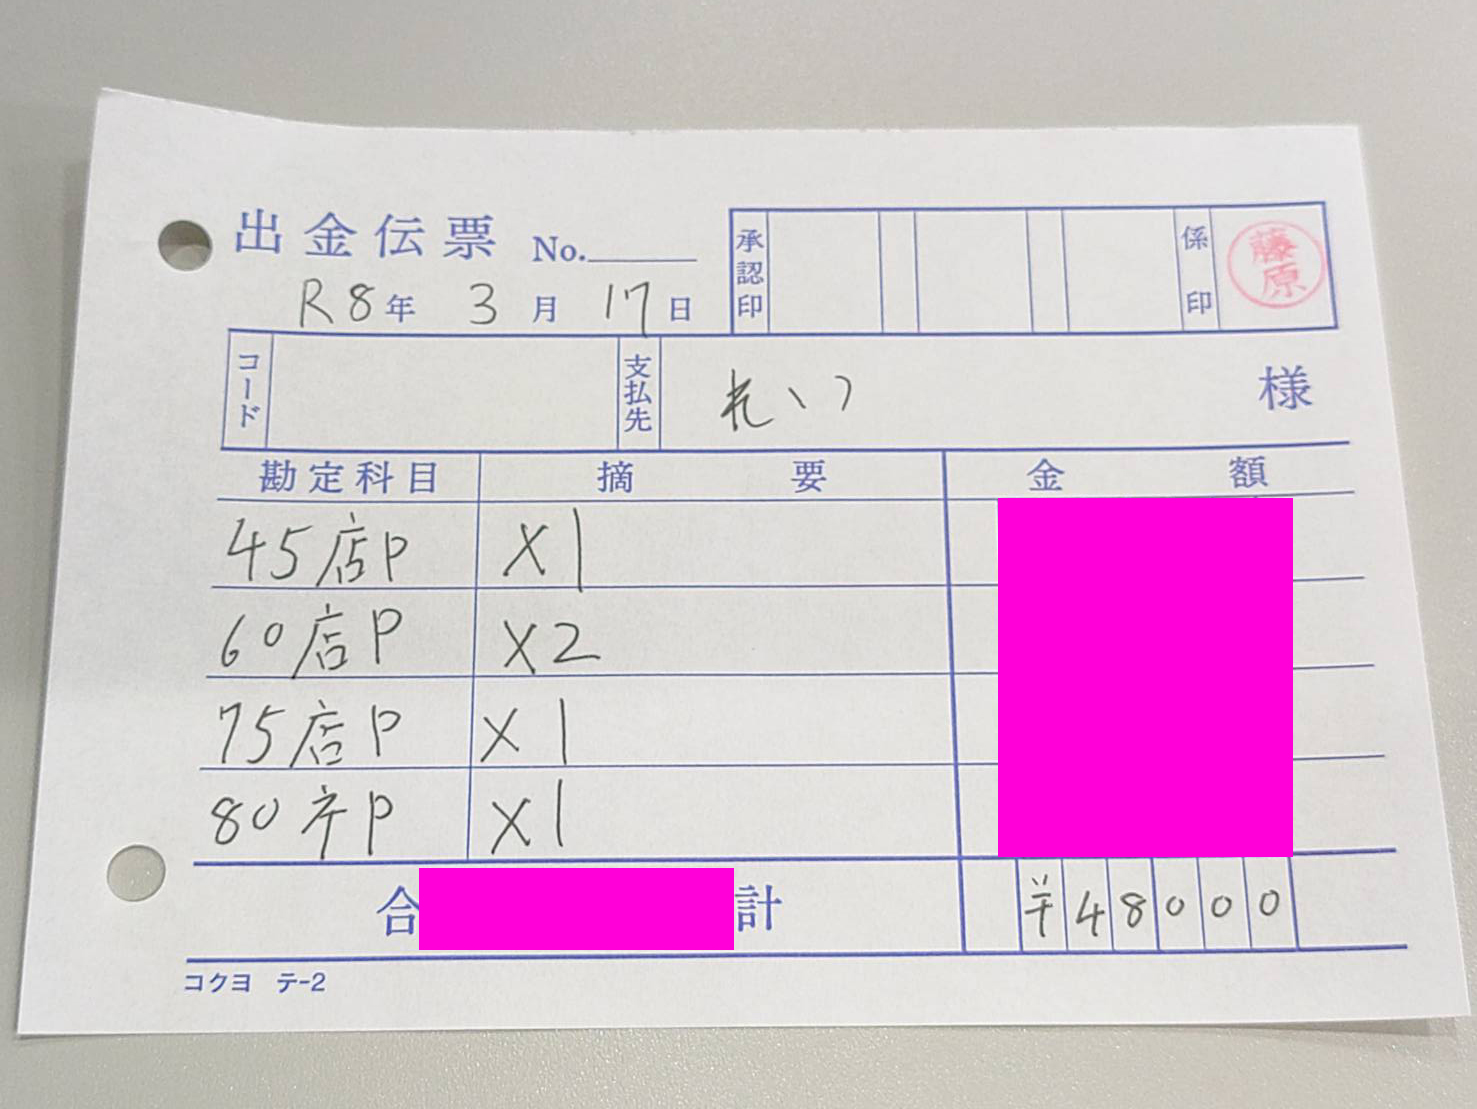 出金伝票 No.
R8年 3月 17日
承認印
係印
藤原
コード
支払先
れいか 様
勘定科目 摘要 金額
45店P ×1
60店P ×2
75店P ×1
80卒P ×1
合計 ¥48000
コクヨ テ-2